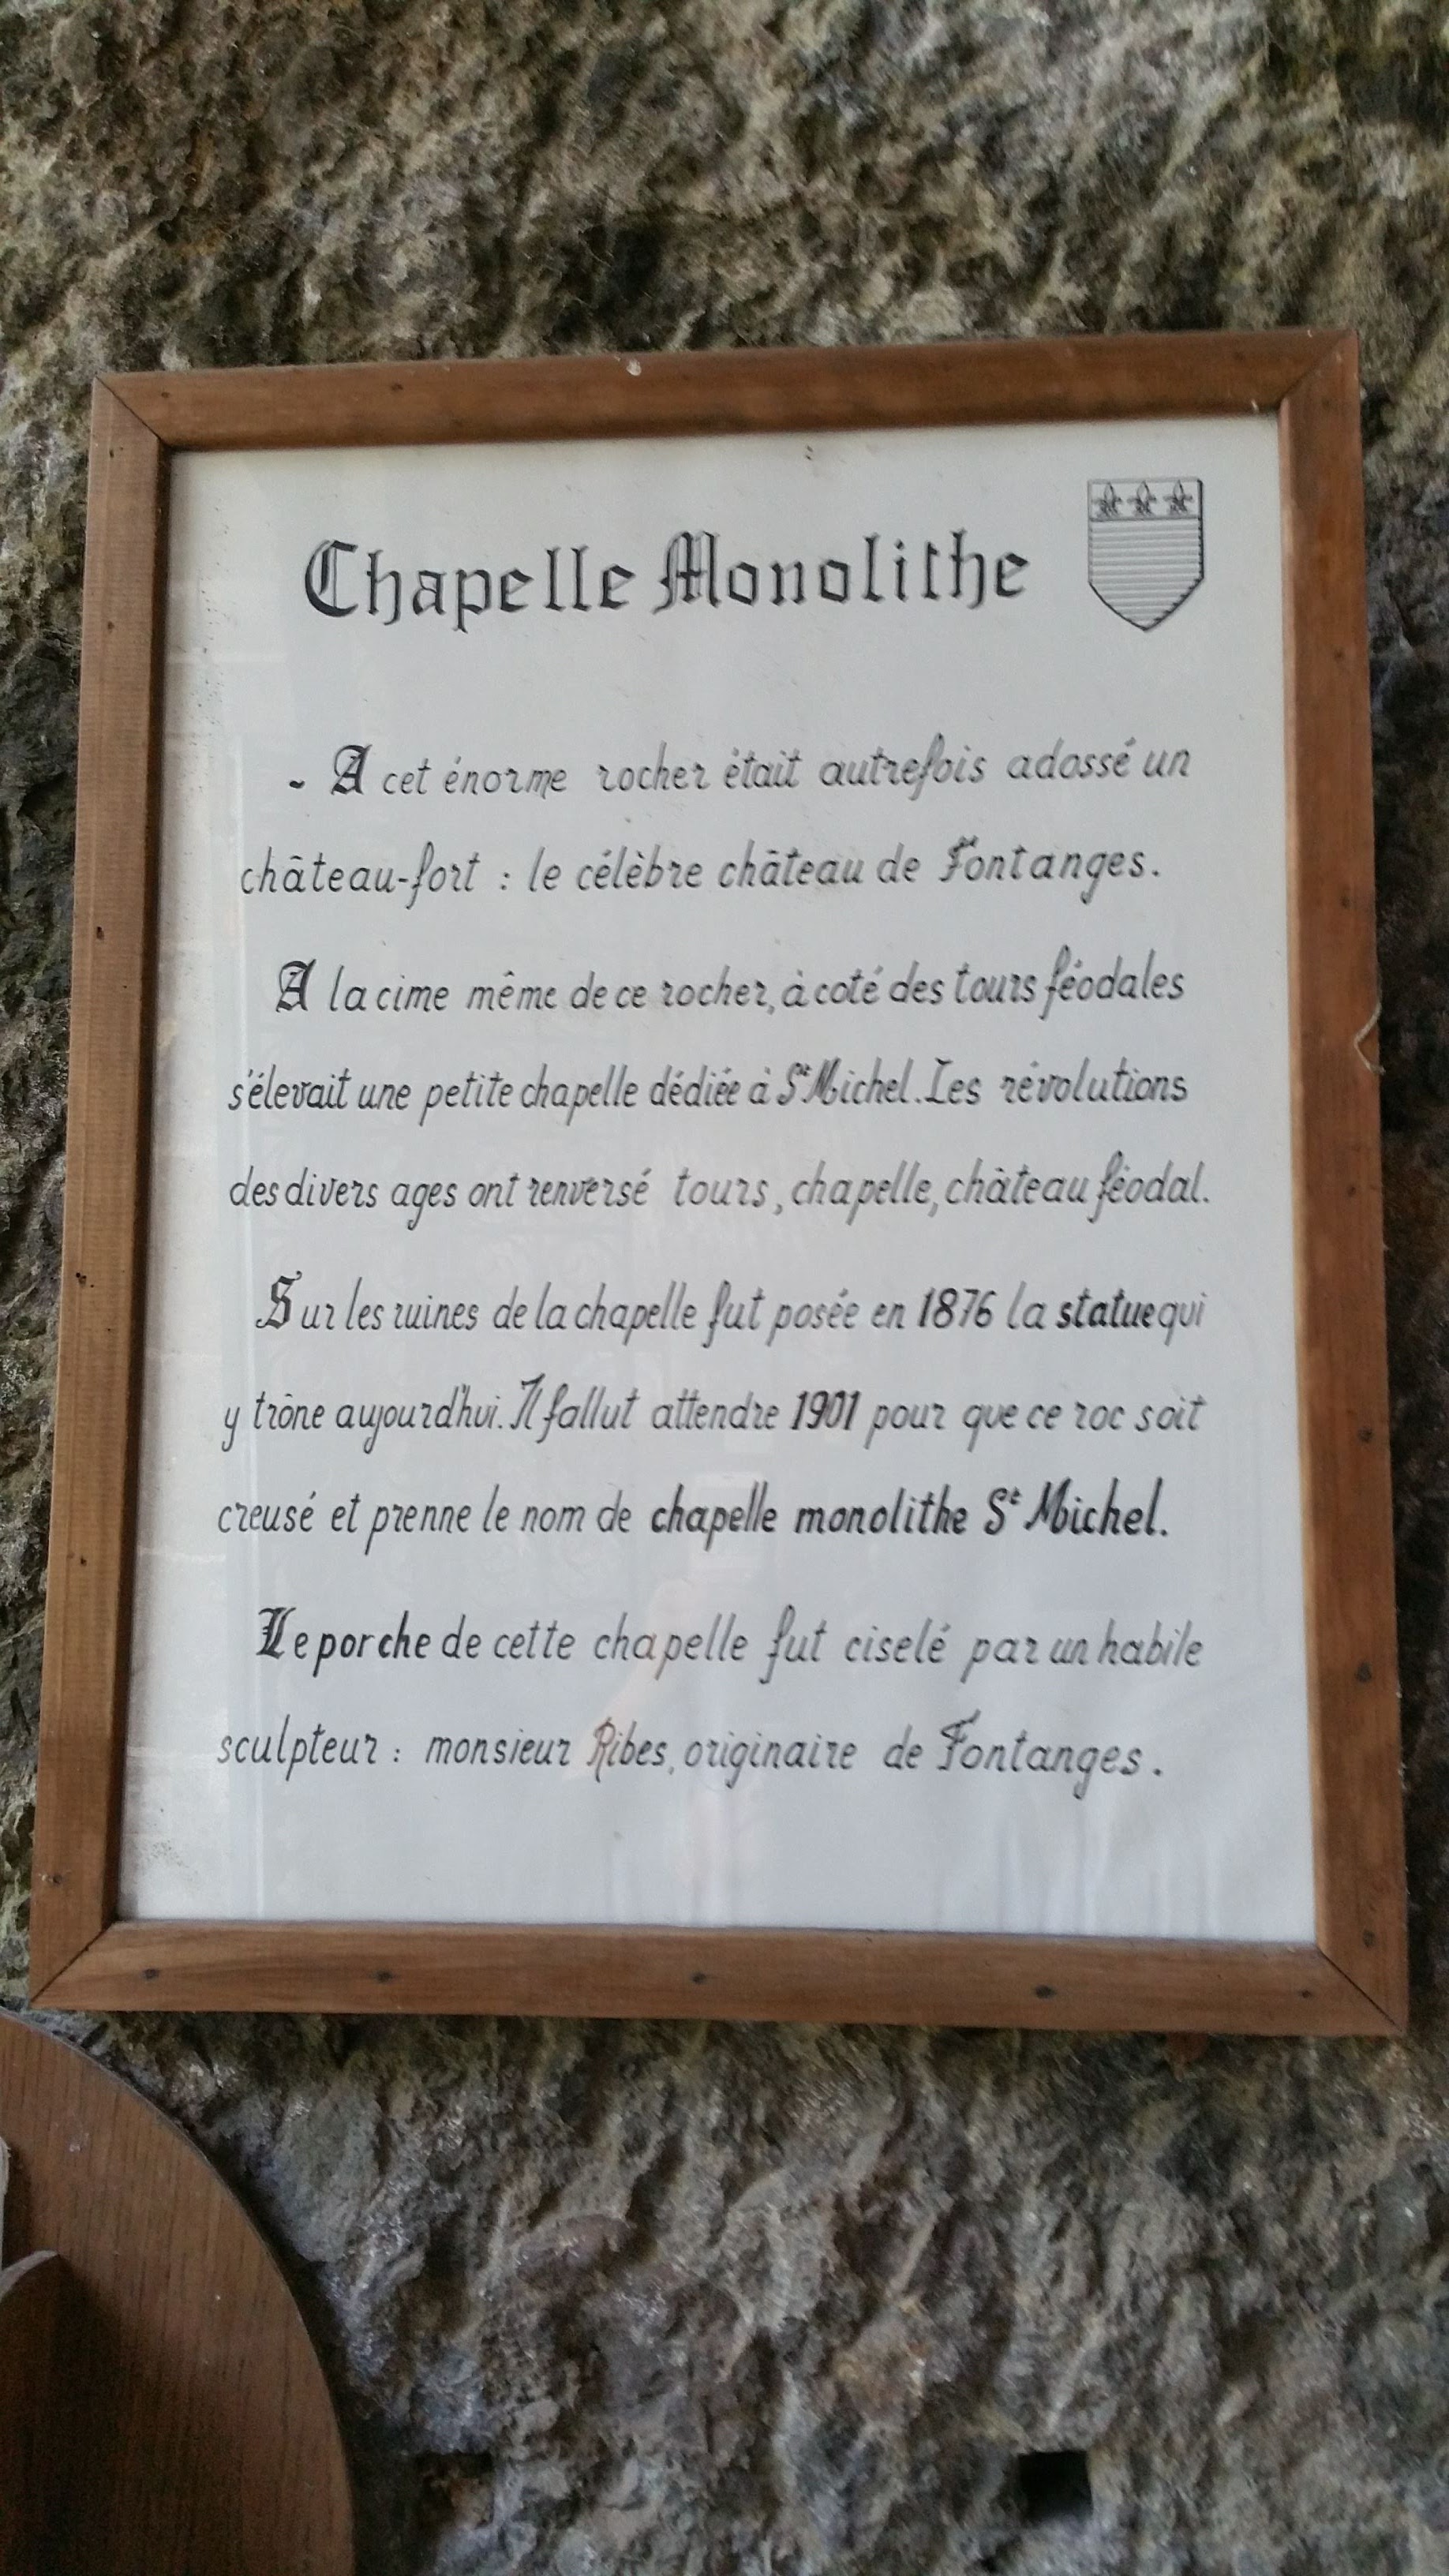 Chapelle Monolithe
- A cet énorme rocher était autrefois adossé un
château-fort : le célèbre château de Fontanges.
A la cime même de ce rocher, à coté des tours féodales
s'élevait une petite chapelle dédiée à St Michel. Les révolutions
des divers ages ont renversé tours, chapelle, château féodal.
Sur les ruines de la chapelle fut posée en 1876 la statue qui
y trône aujourd'hui. Il fallut attendre 1901 pour que ce roc soit
creusé et prenne le nom de chapelle monolithe St Michel.
Le porche de cette chapelle fut ciselé par un habile
sculpteur : monsieur Ribes, originaire de Fontanges.